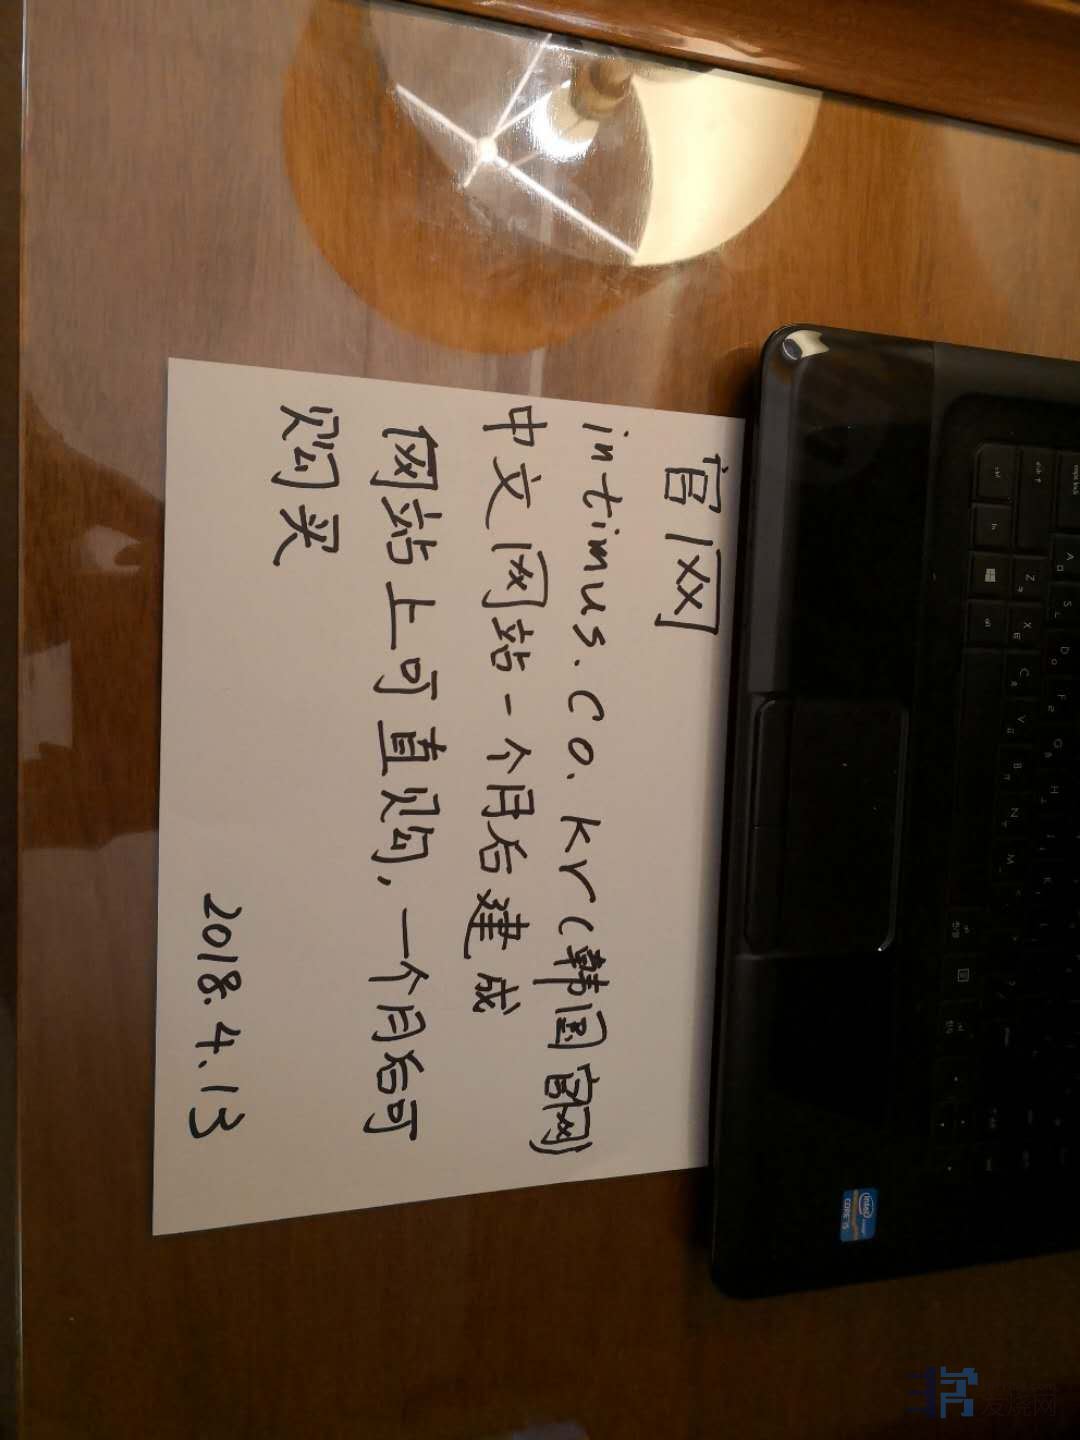 官网
intimus.co.kr(韩国官网)
中文网站一个月后建成
网站上可直购,一个月后可
购买
2018.4.13
intel
CORE i5
发烧网